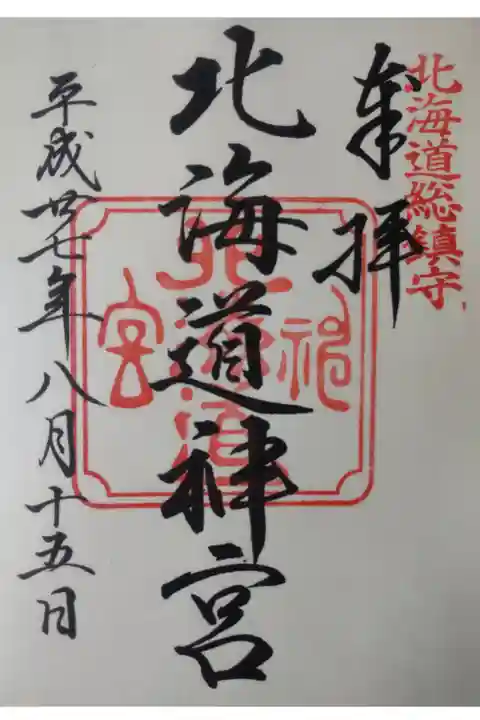 北海道総鎮守
奉拝
北海道神宮
北海道神宮
平成廿七年八月十五日